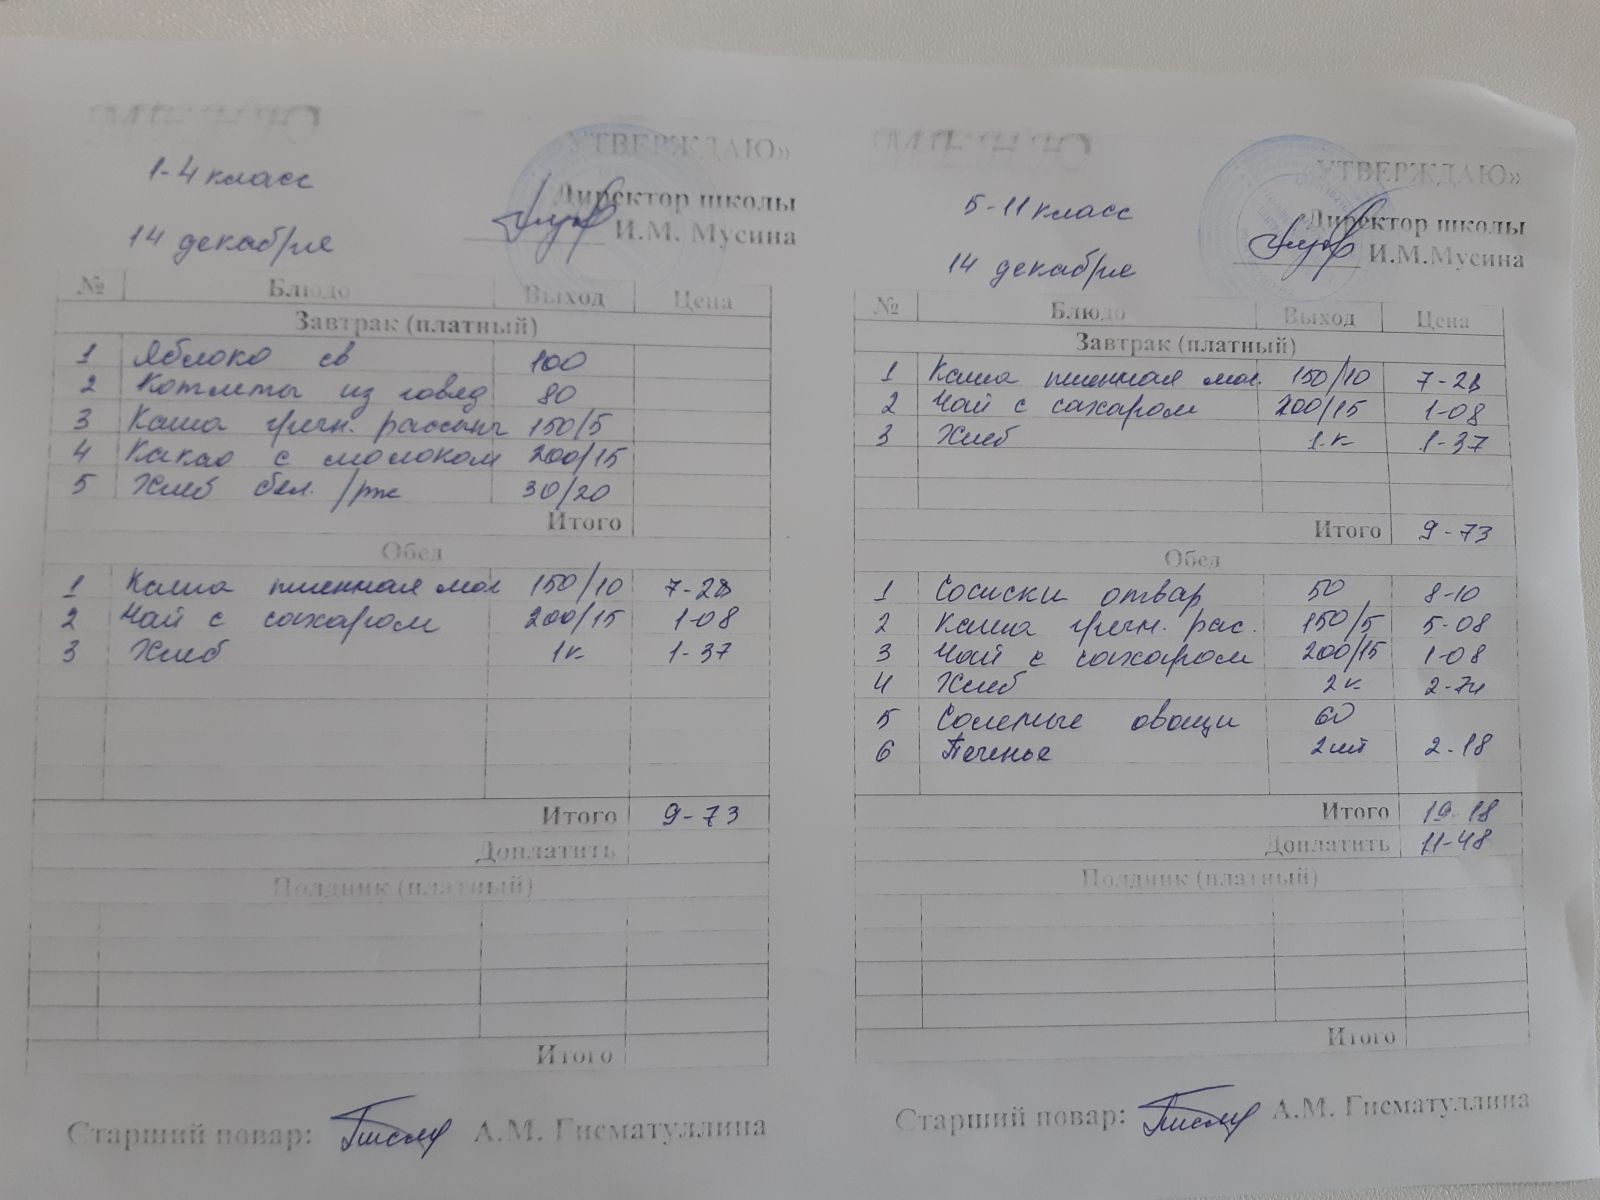 1-4 класс
14 декабря
УТВЕРЖДАЮ»
Директор школы
И.М. Мусина
№ Блюдо Выход Цена
Завтрак (платный)
1 Яблоко св 100
2 Котлеты из говяд 80
3 Каша гречн. рассып 150/5
4 Какао с молоком 200/15
5 Хлеб бел. /рж 30/20
Итого
Обед
1 Каша пшенная мол 150/10 7-28
2 Чай с сахаром 200/15 1-08
3 Хлеб 1к 1-37
Итого 9-73
Доплатить
Полдник (платный)
Итого
Старший повар: А.М. Гисматуллина
5-11 класс
14 декабря
УТВЕРЖДАЮ»
Директор школы
И.М.Мусина
№ Блюдо Выход Цена
Завтрак (платный)
1 Каша пшенная мол. 150/10 7-28
2 Чай с сахаром 200/15 1-08
3 Хлеб 1к 1-37
Итого 9-73
Обед
1 Сосиски отвар 50 8-10
2 Каша гречн. рас. 150/5 5-08
3 Чай с сахаром 200/15 1-08
4 Хлеб 2к 2-74
5 Соленые овощи 60
6 Печенье 2шт 2-18
Итого 19-18
Доплатить 11-48
Полдник (платный)
Итого
Старший повар: А.М. Гисматуллина